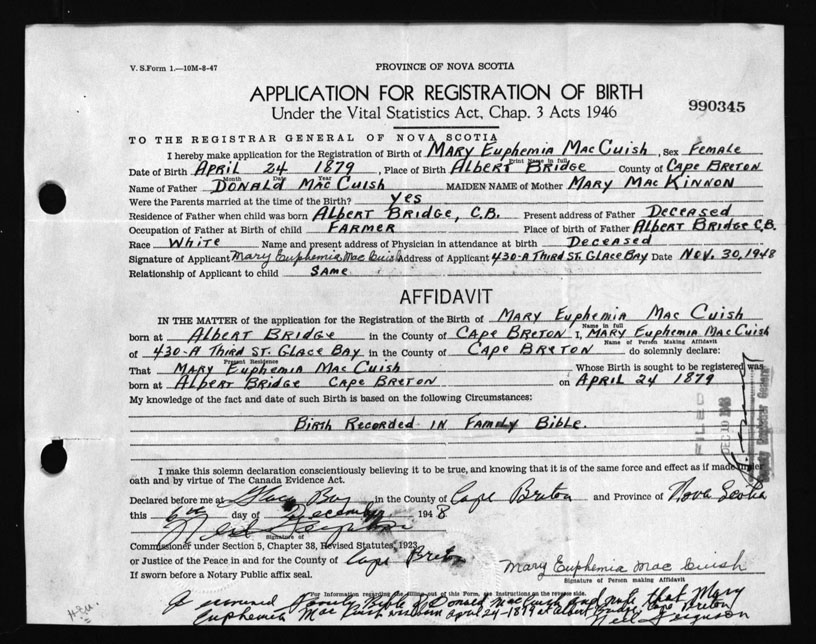 V. S. Form 1.—10M-8-47
PROVINCE OF NOVA SCOTIA
APPLICATION FOR REGISTRATION OF BIRTH
990345
Under the Vital Statistics Act, Chap. 3 Acts 1946
TO THE REGISTRAR GENERAL OF NOVA SCOTIA
I hereby make application for the Registration of Birth of MARY EUPHEMIA MAC CUISH, Sex FEMALE
Print Name in full
Date of Birth APRIL 24 1879, Place of Birth ALBERT BRIDGE County of CAPE BRETON
Month Date Year
Name of Father DONALD MAC CUISH MAIDEN NAME of Mother MARY MAC KINNON
Were the Parents married at the time of the Birth? YES
Residence of Father when child was born ALBERT BRIDGE, C.B. Present address of Father DECEASED
Occupation of Father at Birth of child FARMER Place of birth of Father ALBERT BRIDGE C.B.
Race WHITE Name and present address of Physician in attendance at birth DECEASED
Signature of Applicant Mary Euphemia Mac Cuish Address of Applicant 430-A THIRD ST. GLACE BAY Date NOV. 30, 1948
Relationship of Applicant to child SAME
AFFIDAVIT
IN THE MATTER of the application for the Registration of the Birth of MARY EUPHEMIA MAC CUISH
Name in full
born at ALBERT BRIDGE in the County of CAPE BRETON I, MARY EUPHEMIA MAC CUISH
Name of Person Making Affidavit
of 430-A THIRD ST. GLACE BAY in the County of CAPE BRETON do solemnly declare:
Present Residence
That MARY EUPHEMIA MAC CUISH Whose Birth is sought to be registered was
born at ALBERT BRIDGE CAPE BRETON on APRIL 24 1879
My knowledge of the fact and date of such Birth is based on the following Circumstances:
BIRTH RECORDED IN FAMILY BIBLE.
FILED
DEC 10 1948
Deputy Registrar General
I make this solemn declaration conscientiously believing it to be true, and knowing that it is of the same force and effect as if made under
oath and by virtue of The Canada Evidence Act.
Declared before me at Glace Bay in the County of Cape Breton and Province of Nova Scotia
this 6th day of December 1948
Neil Ferguson
Signature of
Commissioner under Section 5, Chapter 38, Revised Statutes, 1923
or Justice of the Peace in and for the County of Cape Breton
If sworn before a Notary Public affix seal.
Mary Euphemia Mac Cuish
Signature of Person making Affidavit
For Information regarding the filling out of this Form, see Instructions on the reverse side.
I examined Family Bible of Donald MacCuish and note that Mary
Euphemia Mac Cuish was born April 24-1879 at Albert Bridge Cape Breton
Neil Ferguson